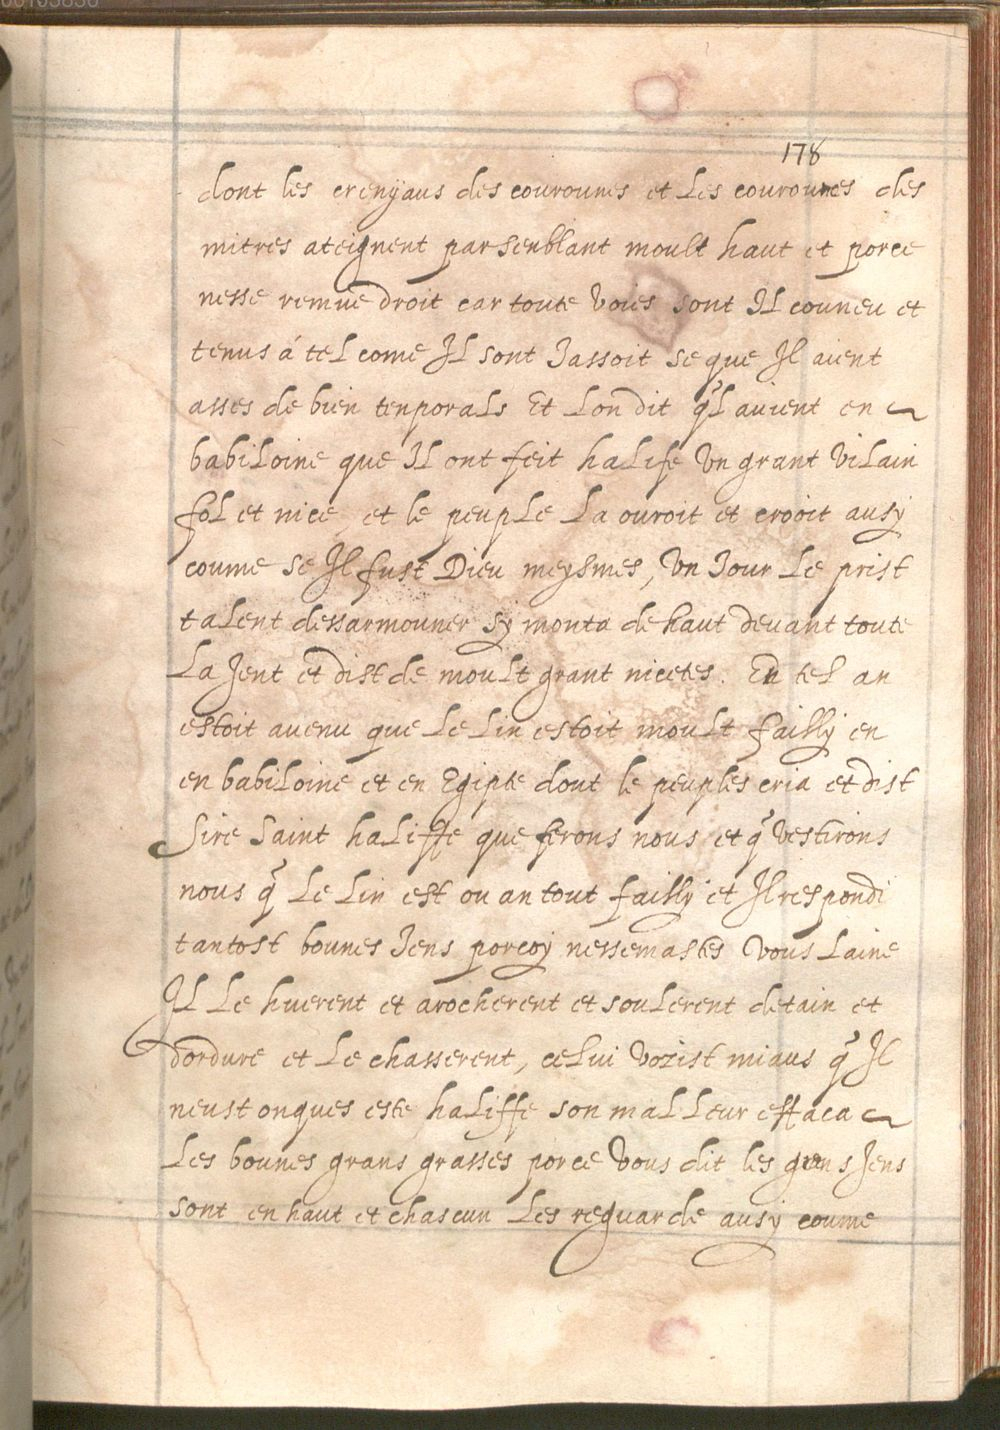 178
dont les crenÿaus des couronnes et Les couronnes des
mitres ateignent par senblant moult haut et porce
nesse remue droit car toute voies sont Il couneu et
tenus á tel come Il sont Jassoit se que Il aient
asses de bien tenporals Et Lon dit q̃l avient en
babiloine que Il ont feit halife Vn grant Vilain
fol et nice, et le peuple La ouroit et crooit ausy
coume se Il fust Dieu meysmes, Vn Jour Le prist
talent dessarmouner sy monta de haut devant toute
La Jent et dist de moult grant nicetes. En tel an
estoit avenu que Le Lin estoit moult failly en
en babiloine et en Egipte dont le peuples cria et dist
Sire Saint haliffe que ferons nous et q̃ vestirons
nous q̃ Le Lin est ou an tout failly et Il respondi
tantost bounes Jens porcoy nessemastes Vous Laine
Il Le huerent et arocherent et soulerent detain et
dordure et Le chasserent, celui Vozist miaus q̃ Il
neust onques este haliffe son malleur effaca
Les bounes grans grasses porce Vous dit les grans Jens
sont en haut et chascun Les reguarde ausy coume